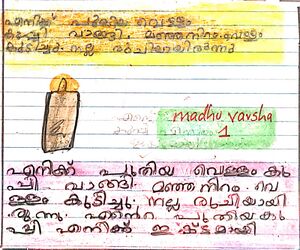 എനിക്ക് പുതിയ വെള്ളം
കുപ്പി വാങ്ങി. മഞ്ഞനിറം. വെള്ളം
കുടിച്ചു. നല്ല രുചിയായിരുന്നു
madhu varsha
1
എനിക്ക് പുതിയ വെള്ളം കു
പ്പി വാങ്ങി മഞ്ഞനിറം. വെ
ള്ളം കുടിച്ചു. നല്ല രുചിയായി
രുന്നു. എൻറെ പുതിയ കു
പ്പി എനിക്ക് ഇഷ്ടമായി